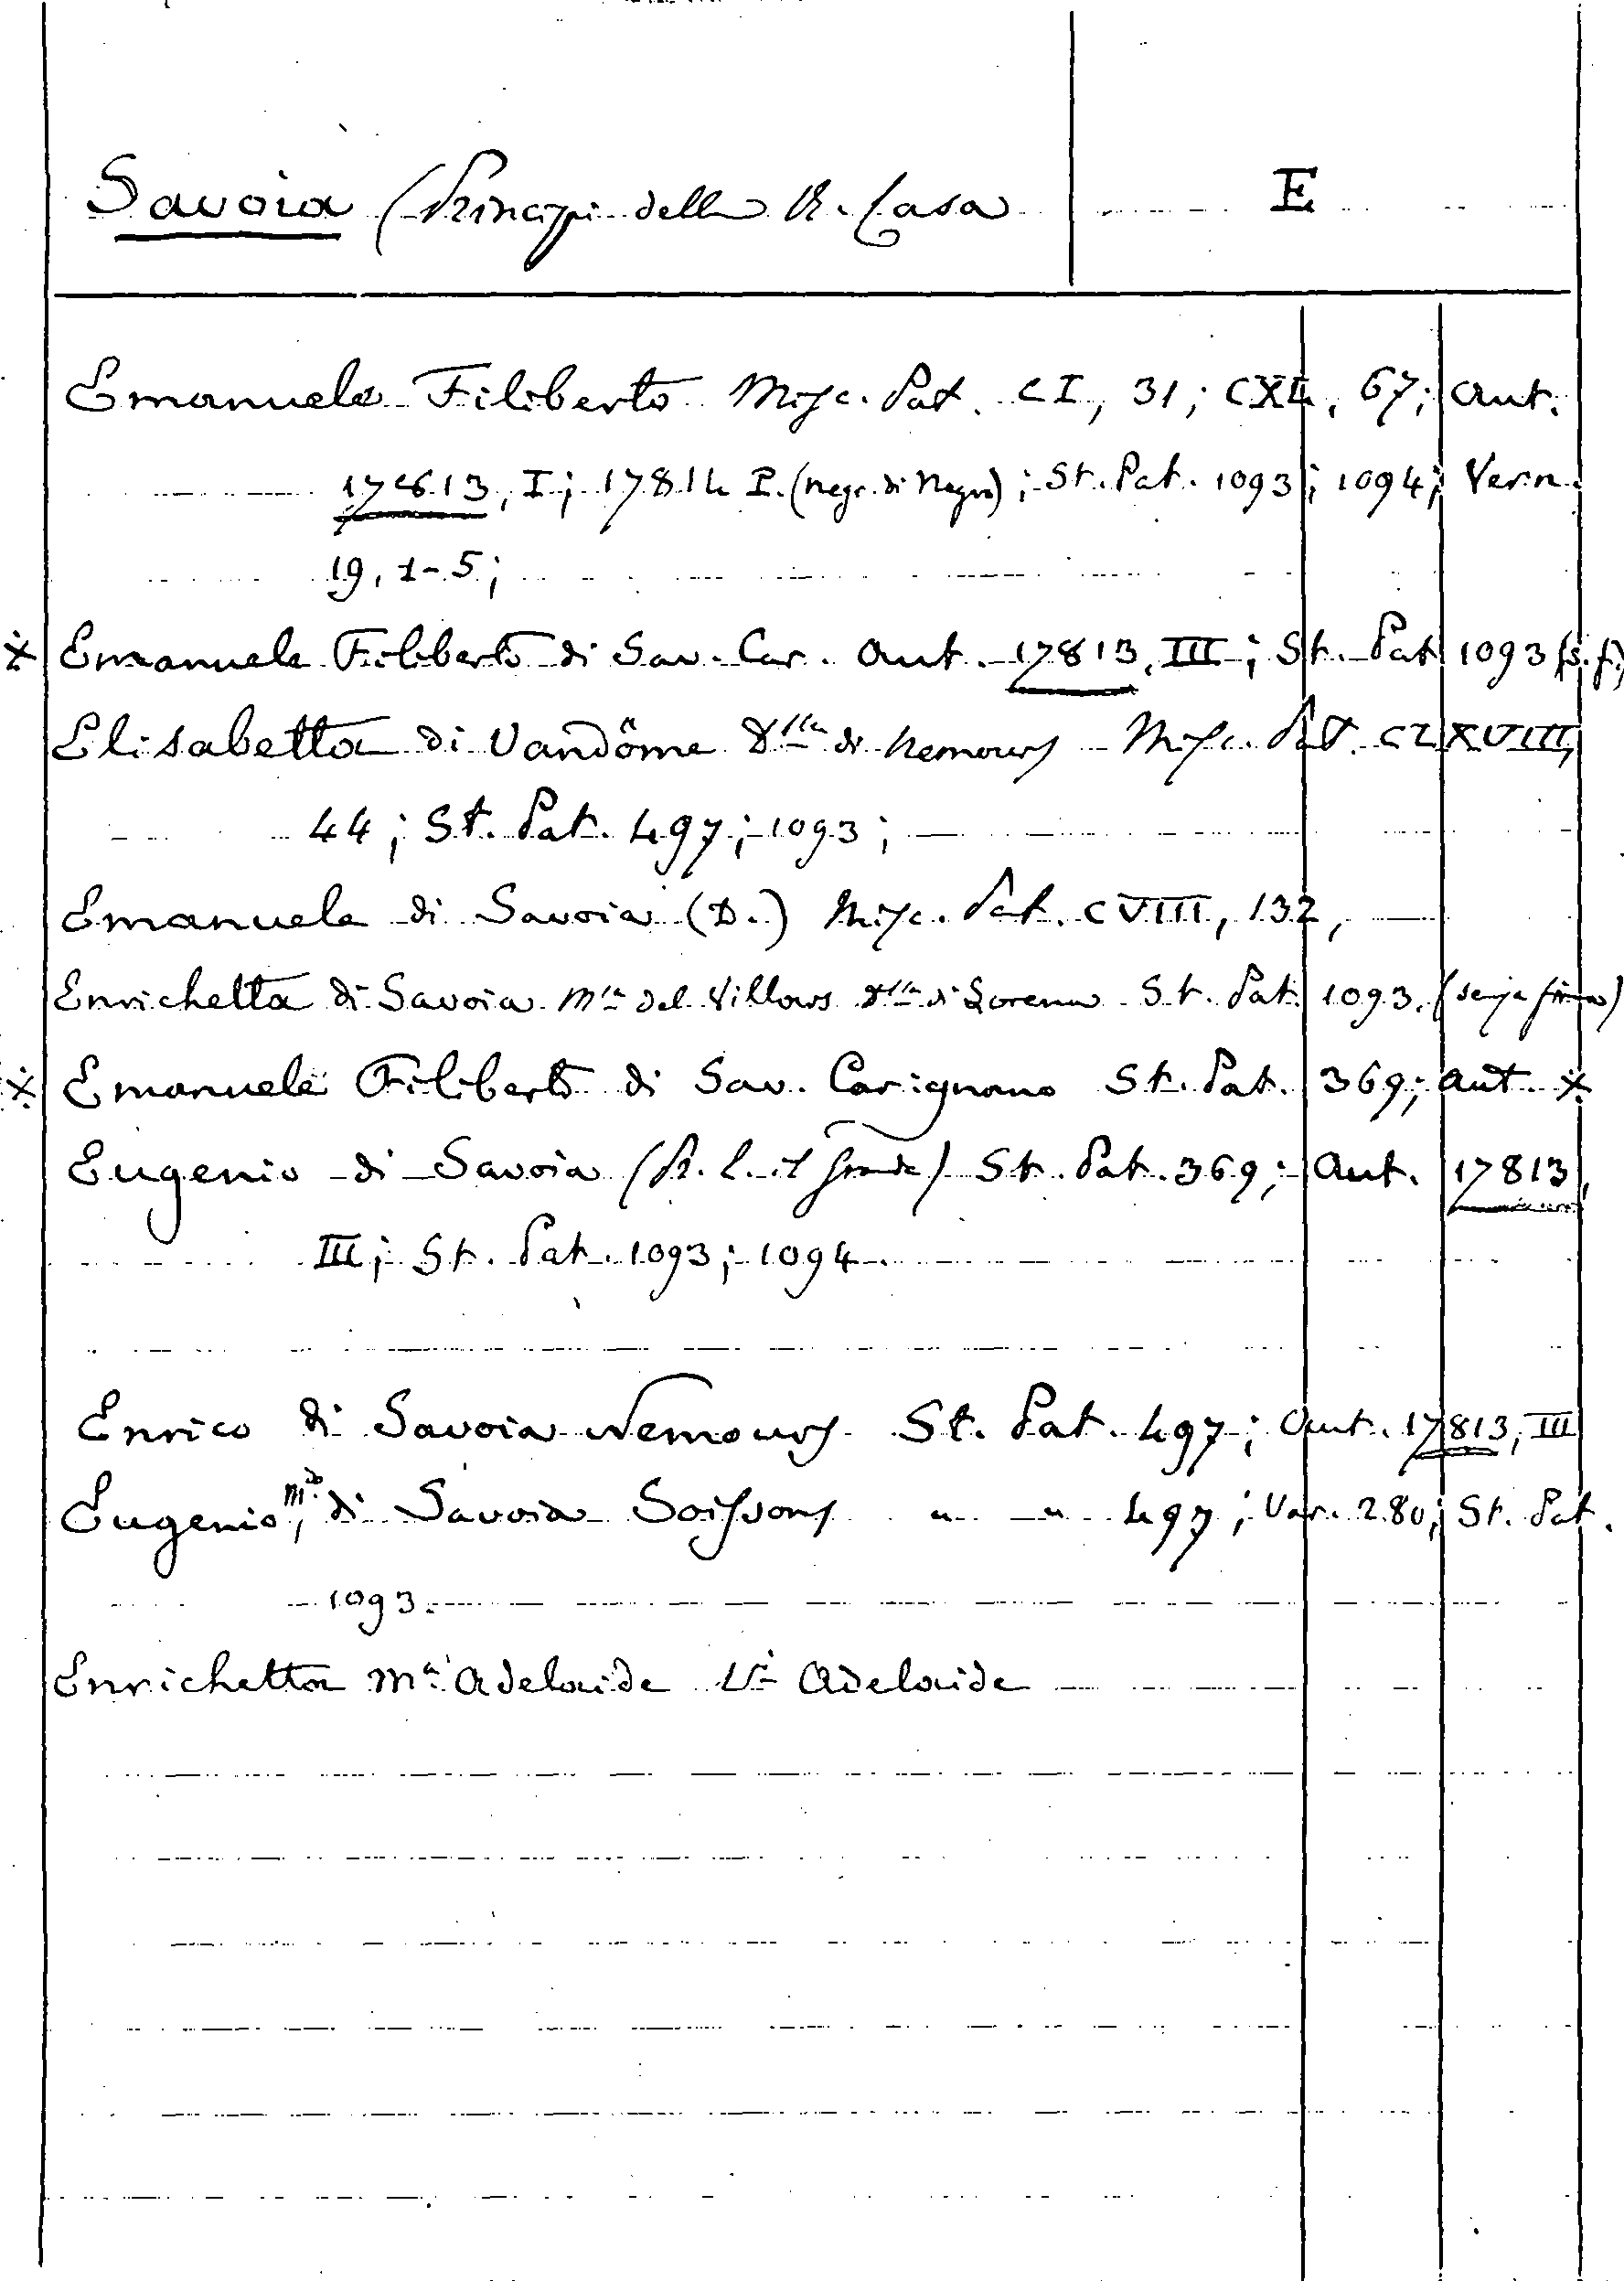 Savoia (Principi della R. Casa
E
Emanuele Filiberto Misc. Pat. CI, 31; CXL, 67; Aut.
17813, I; 17814 I. (Negr. di Negro); St. Pat. 1093; 1094; Vern.
19, 1-5;
× Emanuele Filiberto di Sav. Car. Aut. 17813, III; St. Pat 1093 (s.f.)
Elisabetta di Vandôme di Nemours Misc. Pat. CLXVIII,
44; St. Pat. 497; 1093;
Emanuele di Savoia (D.) Misc. Pat. CVIII, 132,
Enrichetta di Savoia Msa del Villars di Lorena St. Pat. 1093. (senza firma)
× Emanuele Filiberto di Sav. Carignano St. Pat. 369; Aut. ×
Eugenio di Savoia (Pr. il Grande) St. Pat. 369; Aut. 17813,
III; St. Pat. 1093; 1094.
Enrico di Savoia Nemours St. Pat. 497; Aut. 17813, III
Eugenio, Mo di Savoia Soissons " " 497; Var. 280; St. Pat.
1093.
Enrichetta Ma Adelaide Vi Adelaide